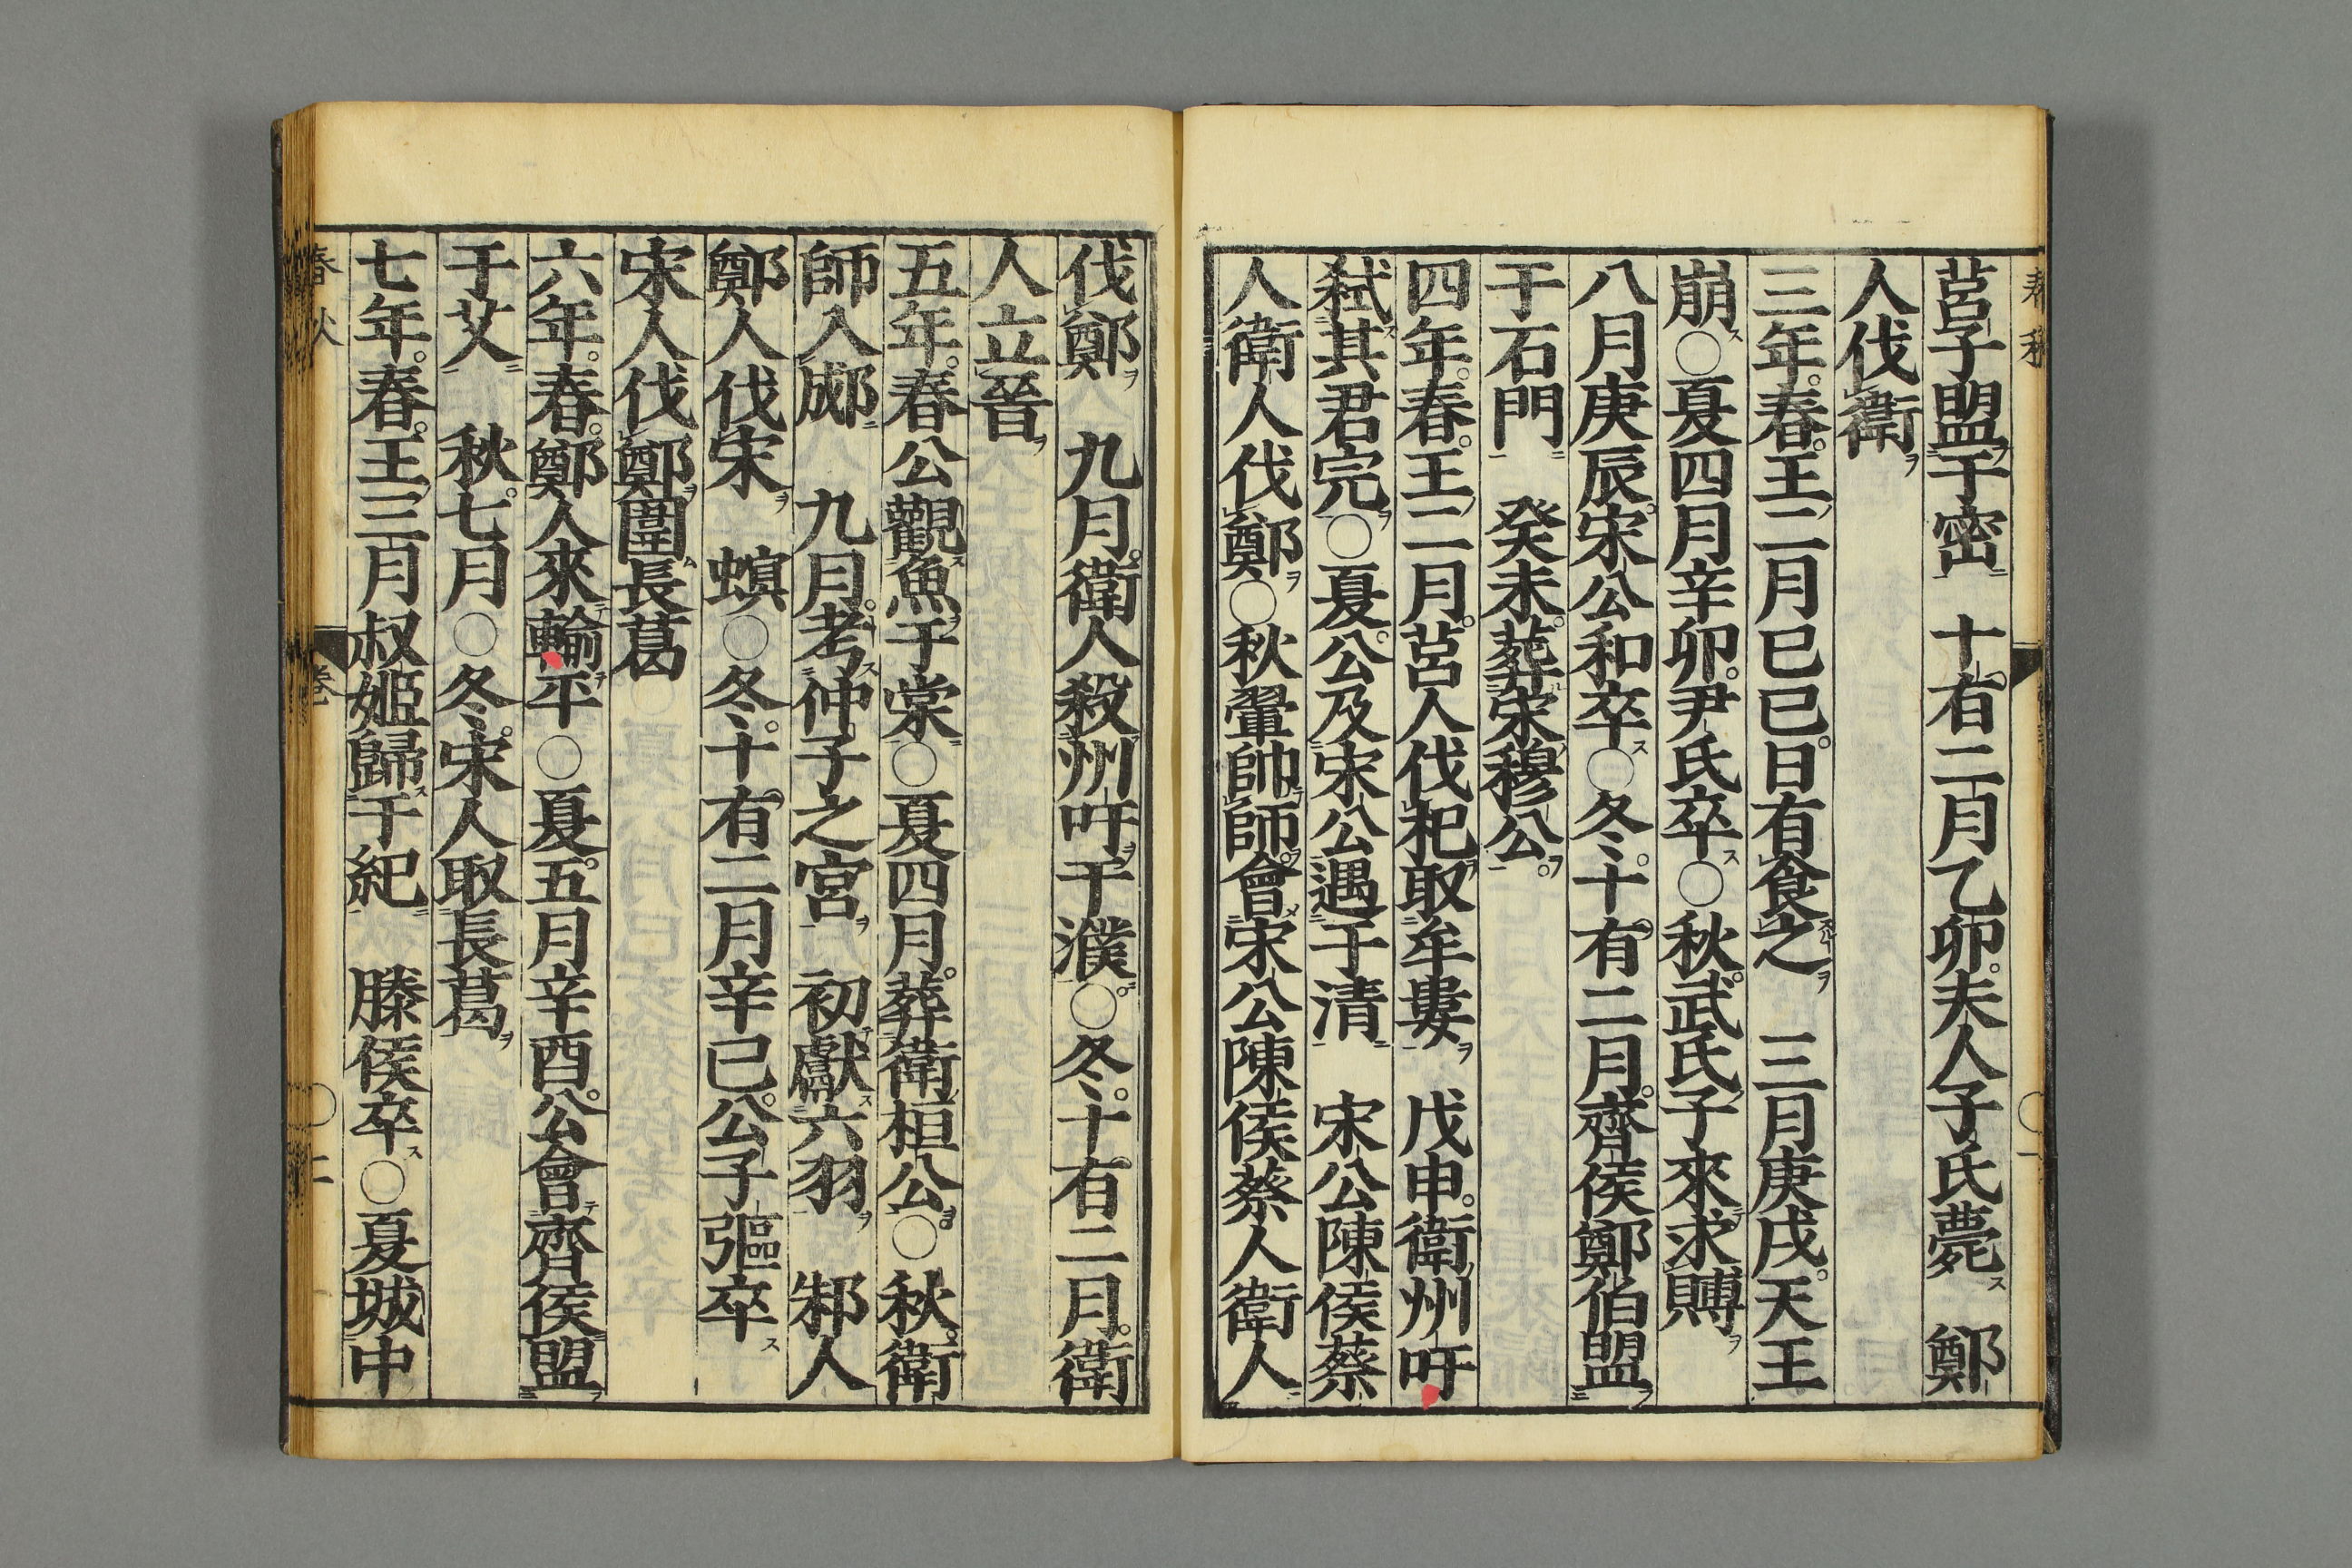 莒子盟于密　十有二月乙卯夫人子氏薨　鄭
人伐衛
三年春王二月己巳日有食之　三月庚戌天王
崩○夏四月辛卯尹氏卒○秋武氏子來求賻
八月庚辰宋公和卒○冬十有二月齊侯鄭伯盟
于石門　癸未葬宋穆公
四年春王二月莒人伐杞取牟婁　戊申衛州吁
弑其君完○夏公及宋公遇于清　宋公陳侯蔡
人衛人伐鄭○秋翬帥師會宋公陳侯蔡人衛人
伐鄭　九月衛人殺州吁于濮○冬十有二月衛
人立晉
五年春公觀魚于棠○夏四月葬衛桓公○秋衛
師入郕　九月考仲子之宮　初獻六羽　邾人
鄭人伐宋　螟○冬十有二月辛巳公子彄卒
宋人伐鄭圍長葛
六年春鄭人來輸平○夏五月辛酉公會齊侯盟
于艾　秋七月○冬宋人取長葛
七年春王三月叔姬歸于紀　滕侯卒○夏城中
春秋
卷一
○二